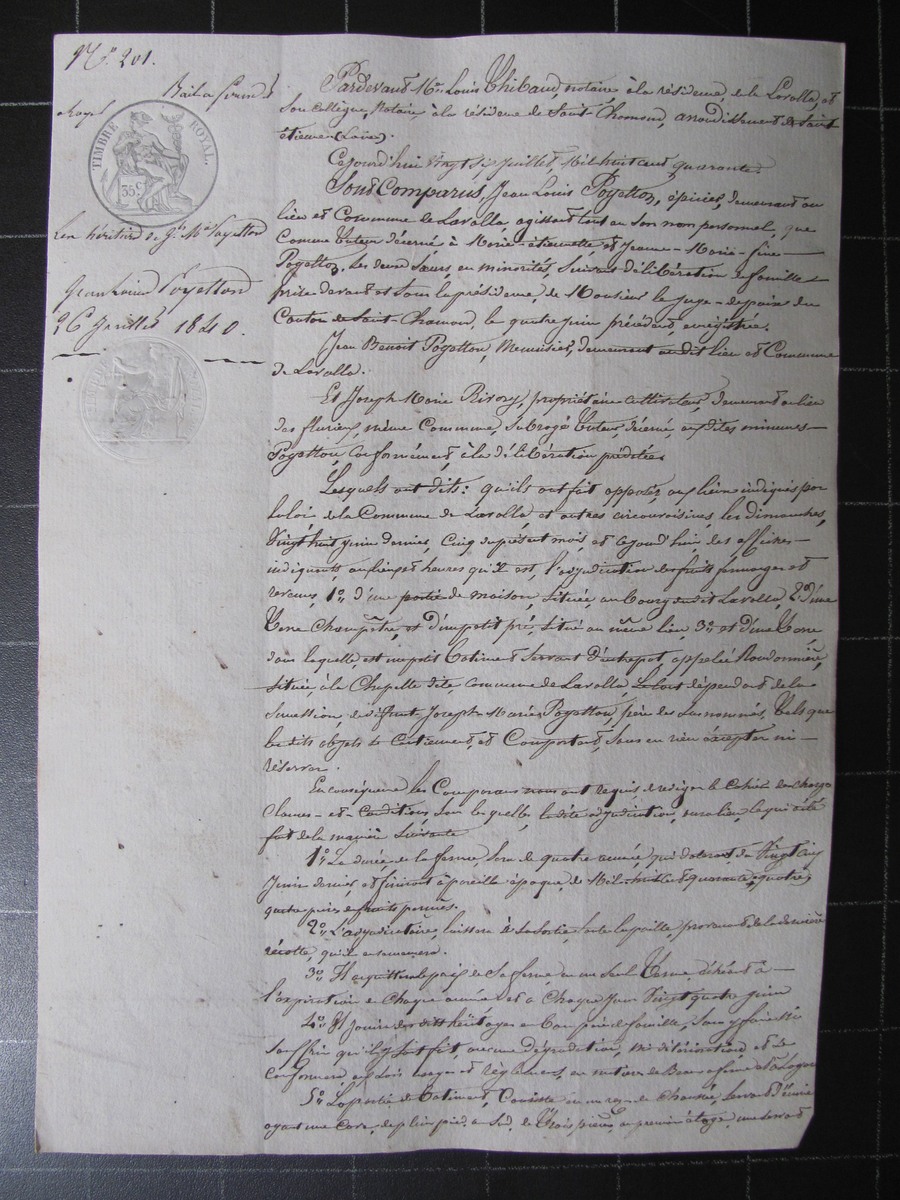 N.° 201.
Bail a ferme
TIMBRE ROYAL.
35 c
Les héritiers
Jean Louis Poyetton
26 Juillet 1840.
Pardevant Me. Louis Thibaud, notaire à la résidence de Lavalla, et
son Collègue, Notaire à la résidence de Saint-Chamond, arrondissement de Saint
étienne (Loire).
Cejourd'hui vingt six juillet, Mil huit cent quarante.
Sont Comparus, Jean Louis Poyetton, épicier, demeurant au
lieu et Commune de Lavalla agissant tant en son nom personnel, que
Comme tuteur décerné à Marie-étiennette, et Jeanne-Marie-fine
Poyetton, les deux sœurs, en minorité, suivant délibération de famille
prise devant et sous la présidence, de Monsieur le Juge-de paix du
Canton de Saint-Chamond, le quatre juin précédent, enregistrée.
Jean Benoit Poyetton, Menuisier, demeurant au dit lieu et Commune
de Lavalla.
Et Joseph Marie Rivory, propriétaire cultivateur, demeurant au lieu
des fleurieux, même Commune, subrogé tuteur, décerné, aux dites mineures
Poyetton, conformément, à la délibération préditée.
Lesquels ont dits: qu'ils ont fait apposer aux lieux indiqués par
la loi, de la Commune de Lavalla, et autres circonvoisines, les dimanches,
vingt huit juin dernier, cinq du présent mois, et cejourd'hui, des affiches
indiquant, aux lieux et heures qu'il est, l'adjudication des fruits primorges et
revenus, 1°, d'une portie de maison, située, au bourg du dit Lavalla, 2° d'une
terre Champêtre, et d'un petit pré, situé au même lieu, 3° et d'une terre,
dans laquelle, est un petit batiment servant d'entrepot, appelée Rondonnière,
située, à la Chapelle dite, commune de Lavalla, le tout dépendant de la
succession, de défunt Joseph-Marie Poyetton, père des susnommés, tels que
les dits objets se Contiennent, et Comportent, sans en rien excepter ni
réserver.
En conséquence les Comparans nous ont requis de rédiger le cahier des charges
clauses-et-conditions, sous les quelles, la dite adjudication, aura lieu, ce qui a été
fait de la manière suivante
1° La durée, de la ferme, sera de quatre années, qui dateront du vingt cinq
Juin dernier, et finiront à pareille époque, de Mil-huit-cent quarante-quatre,
quatre prises de fruits permis.
2° L'adjudicataire, laissera à la sortie, toute la paille, provenant de la dernière
récolte, qu'il ensemencera.
3° Il acquittera le prix de sa ferme, en un seul terme échéant à
l'expiration de chaque année et à chaque jour vingt quatre juin
4° Il jouira des dits héritages en bon père de famille, sans y faire ni
souffrir qu'il y soit fait, aucune dégradation, ni détérioration, et se
conformera, aux lois, usages et réglemens, en matière de Beaux à ferme et à Loyer
5° La partie de batiment, Consiste en un rez-de Chaussée, servant d'écurie
ayant une cave, de plein pied, au Sud, de trois pièces, au premier étage, une servant